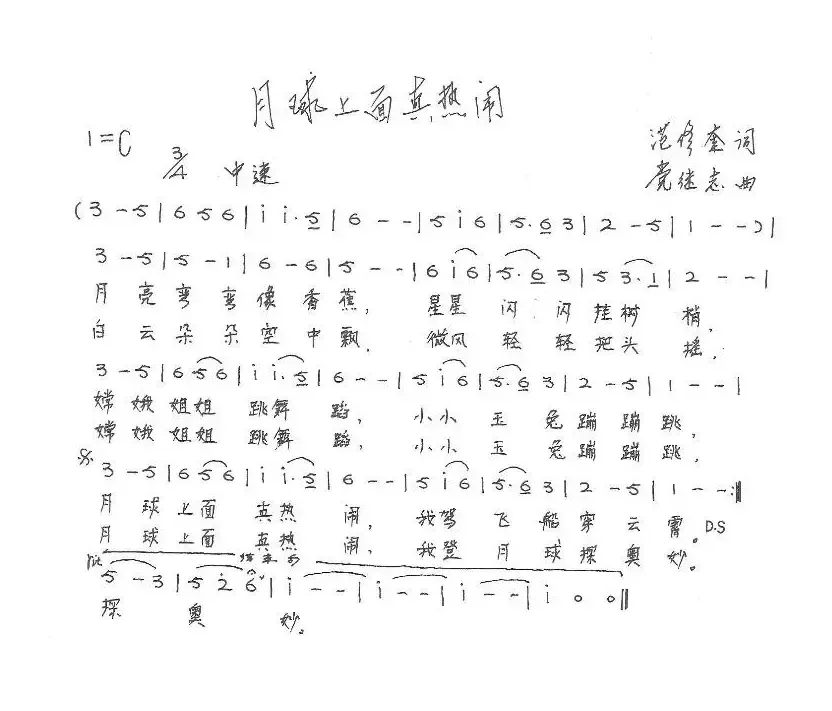 月球上面真热闹
1=C 3/4 中速
范修奎 词
党继志 曲
(3 - 5 | 6 5 6 | i i· 5 | 6 - - | 5 i 6 | 5· 6 3 | 2 - 5 | 1 - - ) |
3 - 5 | 5 - 1 | 6 - 6 | 5 - - | 6 i 6 | 5· 6 3 | 5 3· 1 | 2 - - |
月 亮 弯 弯 像 香 蕉, 星星 闪 闪 挂 树 梢,
白 云 朵 朵 空 中 飘, 微风 轻 轻 把 头 摇,
3 - 5 | 6 5 6 | i i· 5 | 6 - - | 5 i 6 | 5· 6 3 | 2 - 5 | 1 - - |
嫦 娥 姐姐 跳舞 蹈, 小小 玉 兔 蹦 蹦 跳,
嫦 娥 姐姐 跳舞 蹈, 小小 玉 兔 蹦 蹦 跳,
3 - 5 | 6 5 6 | i i· 5 | 6 - - | 5 i 6 | 5· 6 3 | 2 - 5 | 1 - - :‖
月 球 上面 真热 闹, 我驾 飞 船 穿 云 霄。 D.S
月 球 上面 真热 闹, 我登 月 球 探 奥 妙。
rit 结束句
5 - 3 | 5 2 6 | i - - | i - - | i - - | i 0 0 ‖
探 奥 妙。